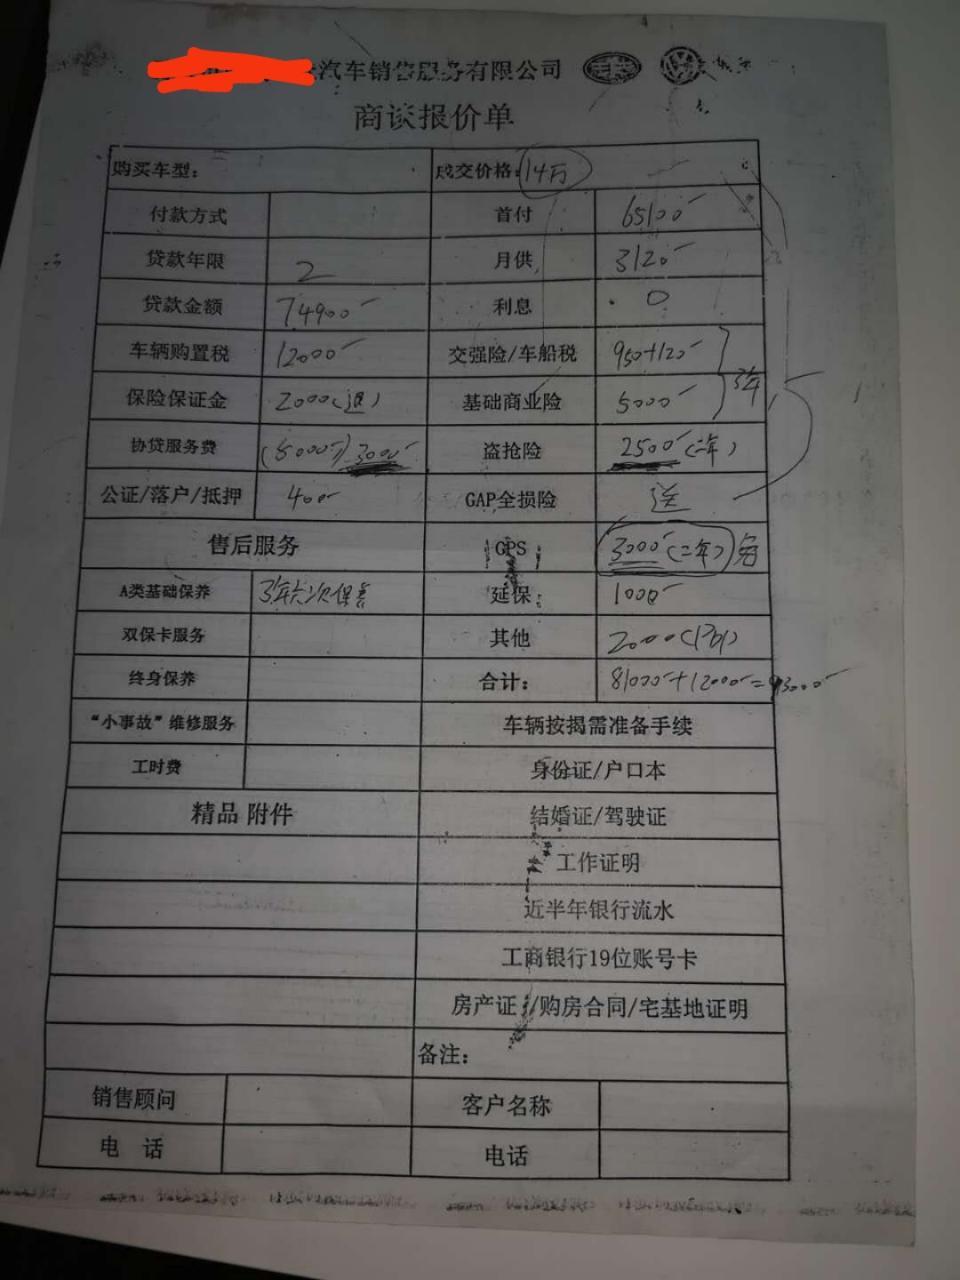 汽车销售服务有限公司
商谈报价单
购买车型： 成交价格：14万
付款方式 首付 65100
贷款年限 2 月供 3120
贷款金额 74900 利息 0
车辆购置税 12000 交强险/车船税 950+120
保险保证金 2000(退) 基础商业险 5000 3年
协贷服务费 (5000) 3000 盗抢险 2500(二年)
公证/落户/抵押 400 GAP全损险 送
售后服务 GPS 3000(二年)
A类基础保养 3年六次保养 延保： 1000
双保卡服务 其他 2000
终身保养 合计： 81000+12000=93000
“小事故”维修服务 车辆按揭需准备手续
工时费 身份证/户口本
精品 附件 结婚证/驾驶证
工作证明
近半年银行流水
工商银行19位账号卡
房产证/购房合同/宅基地证明
备注：
销售顾问 客户名称
电 话 电话